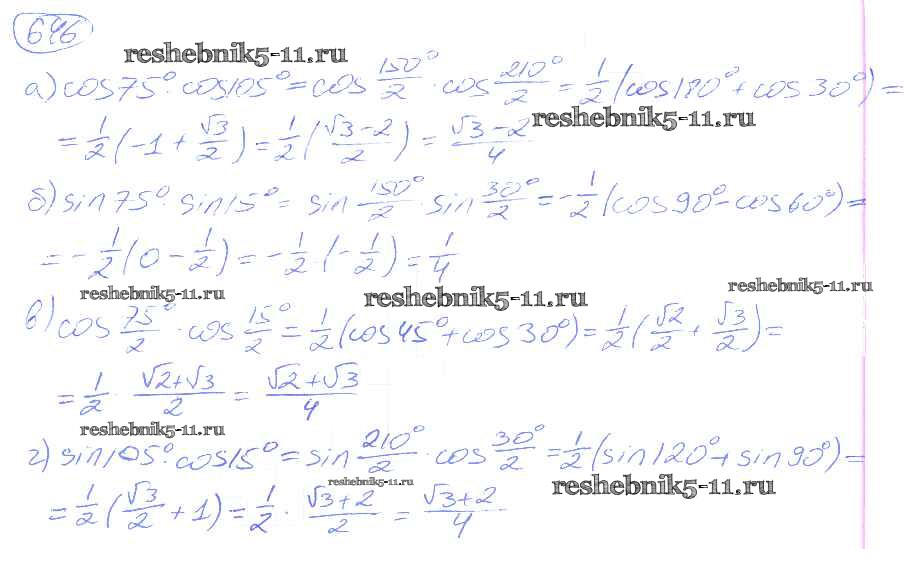 646
reshebnik5-11.ru
а) cos75°·cos105° = cos 150°/2 · cos 210°/2 = 1/2 (cos180° + cos30°) =
= 1/2 (-1 + √3/2) = 1/2 (√3-2/2) = √3-2/4
reshebnik5-11.ru
б) sin75°·sin15° = sin 150°/2 · sin 30°/2 = -1/2 (cos90° - cos60°) =
= -1/2 (0 - 1/2) = -1/2 · (-1/2) = 1/4
reshebnik5-11.ru
reshebnik5-11.ru
reshebnik5-11.ru
в) cos 75°/2 · cos 15°/2 = 1/2 (cos45° + cos30°) = 1/2 (√2/2 + √3/2) =
= 1/2 · √2+√3/2 = √2+√3/4
reshebnik5-11.ru
г) sin105°·cos15° = sin 210°/2 · cos 30°/2 = 1/2 (sin120° + sin90°) =
reshebnik5-11.ru
reshebnik5-11.ru
= 1/2 (√3/2 + 1) = 1/2 · √3+2/2 = √3+2/4